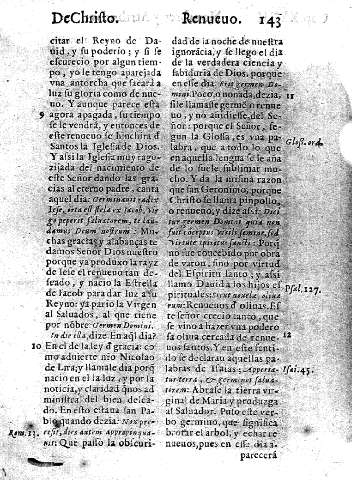 De Christo. Renueuo. 143
citar el Reyno de Da-
uid, y su poderio; y si se
escurecio por algun tiem-
po, yo le tengo aparejada
vna antorcha que sacarà a
luz su gloria como de nue-
uo. Y aunque parece esta
9 agora apagada, su tiempo
se le vendrà, y entonces de
este renueuo se henchira la
Santa la Iglesia de Dios.
Y assi la Iglesia muy rago-
zijada del nacimiento de
este Señor dando las gracias
al eterno padre, canta
aquel dia: Germinauit radix
Iesse, orta est stella ex Iacob, Virgo
peperit Saluatorem, te lau-
damus Deum nostrum: Mu-
chas gracias y alabanças te
damos Señor Dios nuestro
porque ya produxo la rayz
de Iese el renueuo tan de-
seado, y nacio la Estrella
de Iacob para dar luz a su
Reyno: ya pario la Virgen
al Saluador, al que tiene
por nõbre Germen Domini.
In die illa, dize En aql dia?
10 En el de la ley d gracia: co-
mo aduierte nro Nicolao
de Lira; y llamale dia porq
nacio en el la luz, y por la
noticia, y claridad q nos ad-
ministra del bien desea-
do. En esto estaua san Pa-
blo quando dezia: Nox præ-
Rom. 13. cessit, dies autem appropinqua-
uit: Que passò la obscuri-
dad de la noche de nuestra
ignorãcia, y se llego el dia
de la verdadera ciencia y
sabiduria de Dios, porque
en esse dia. Erit germen Do-
11 mini. Poco, o nonada dezia,
si le llamasse germen o renue-
uo, y no añdiesse, del Se-
ñor: porque el Señor, se-
gun la Glossa, es vna pa- Glos. ord.
labra, que a todo lo que
en aquella lengua se le aña-
de lo suele sublimar mu-
cho. Y da la misma razon
san Geronimo, porque
Christo se llama pimpollo,
o renueuo, y dize assi: Dici-
tur germen Domini quia non
fuit conceptus virili semine, sed
Virtute spiritus sancti: Porq
no fue concebido por obra
de varon, sino por virtud
del Espiritu santo; y assi
llamo Dauid a los hijos es-
pirituales: Sicut nouelæ oliua- Psal. 127.
rum: Renueuos d oliuas. Es-
te señor crecio tanto, que
se vino a hazer vna podero
12 sa oliua cercada de renue-
uos santos. Y en este senti-
do se declarau aquellas pa-
labras de Isaias: Aperia- Isai. 45.
tur terra, & germinet salua-
torem: Abrase la tierra vir-
ginal de Maria y produzga
al Saluador. Puso este ver-
bo germino, que significa
brotar el arbol, y echar re-
nueuos, pues en este dia
parecerà